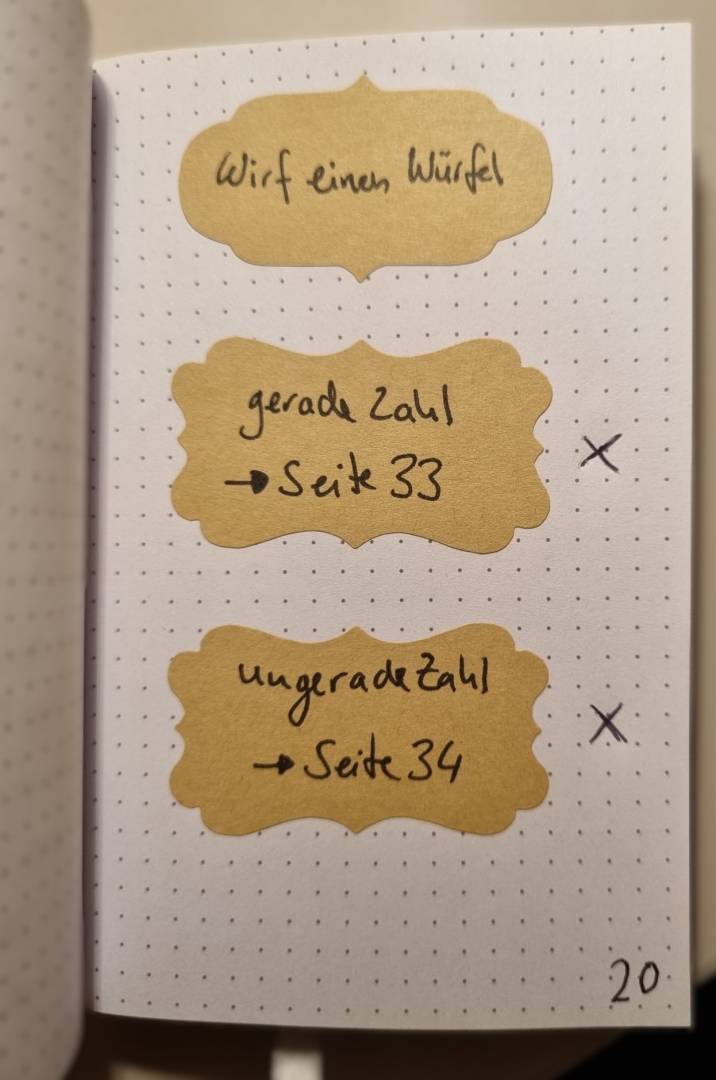 Wirf einen Würfel
gerade Zahl
→ Seite 33
X
ungerade Zahl
→ Seite 34
X
20